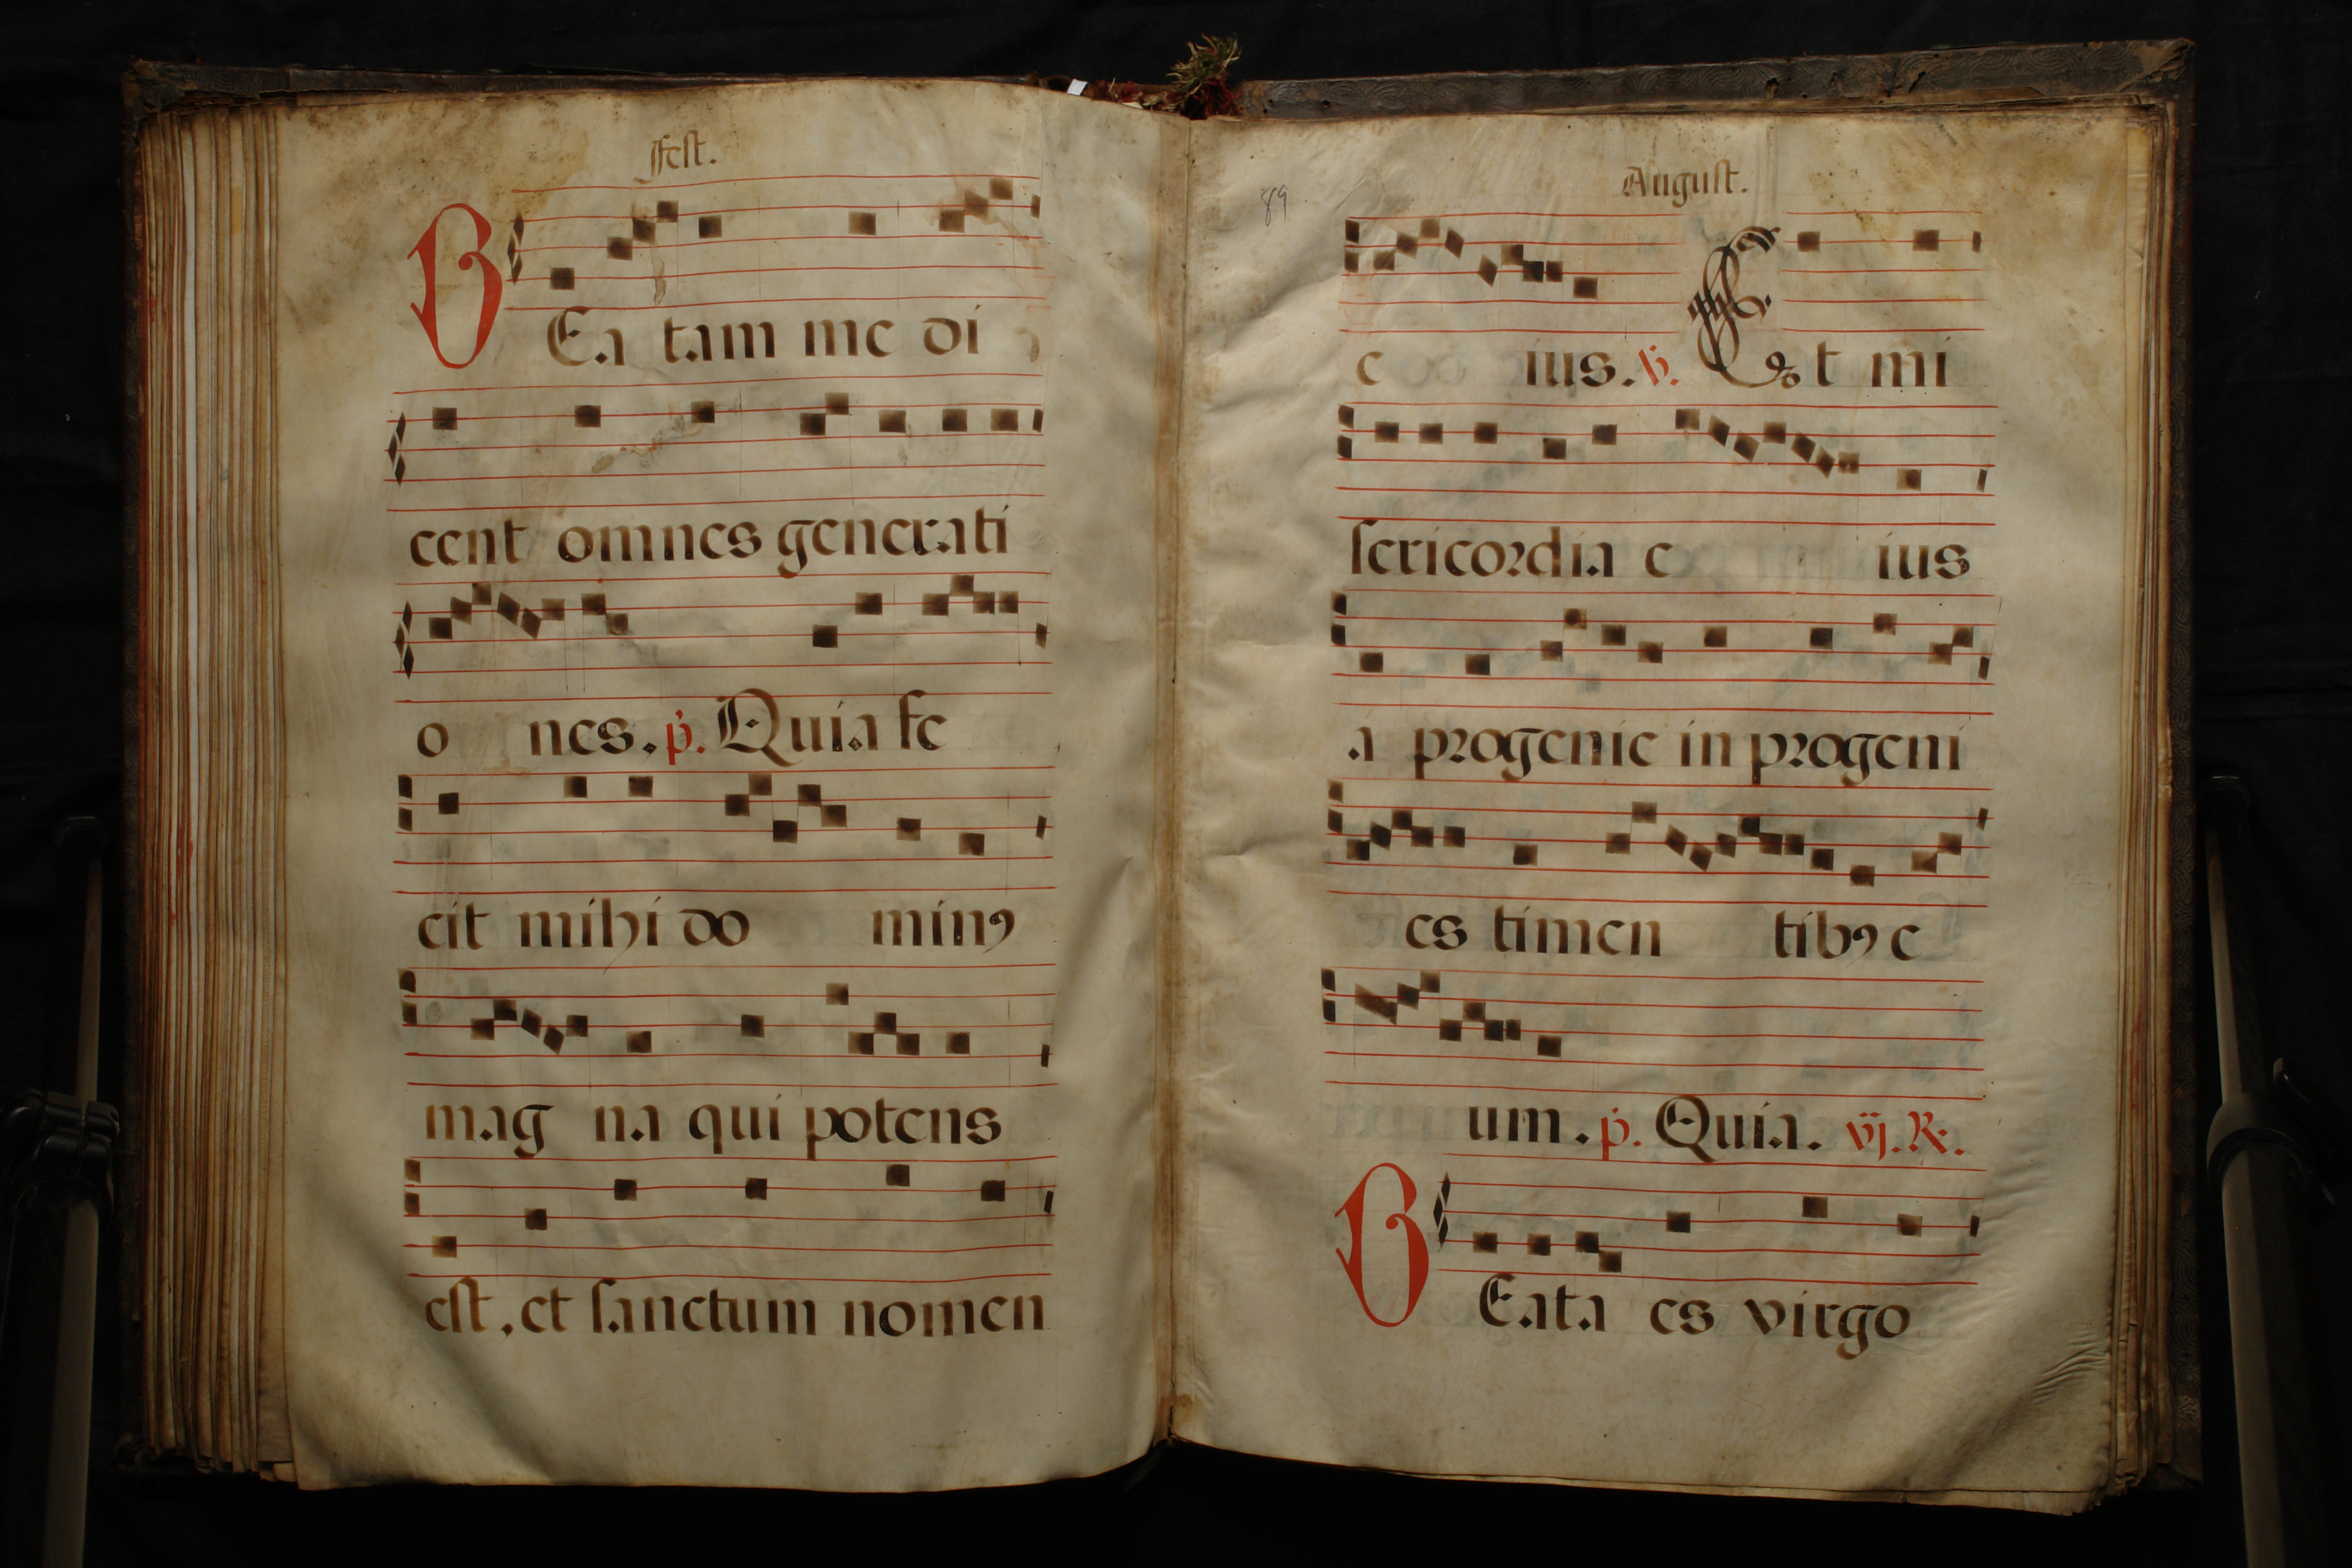 Fest.
BEa tam me di
cent omnes generati
o nes. p. Quia fe
cit mihi do min9
mag na qui potens
est, et sanctum nomen
89
August.
e ius. v. Et mi
sericordia e ius
a progenie in progeni
es timen tib9 e
um. p. Quia. vij. R.
BEata es virgo